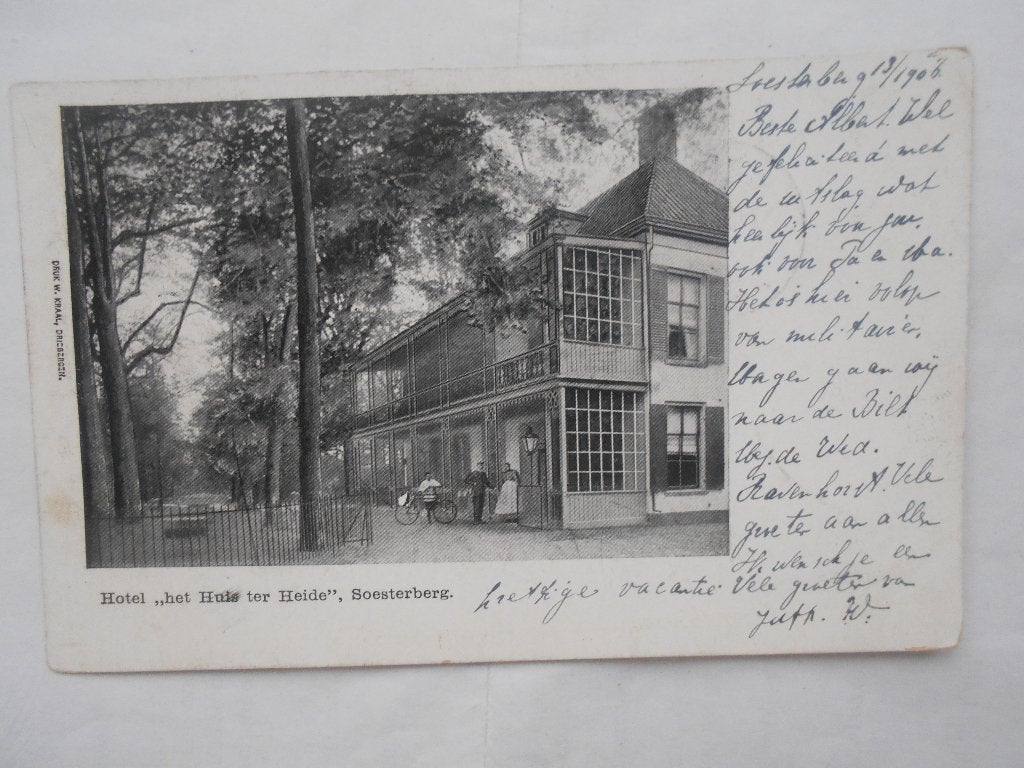 Soesterberg 18/1906
Beste Albert. Wel
gefeliciteerd met
de uitslag wat
heerlijk voor jou.
ook voor Pa en Ma.
Het is hier volop
van militairen,
Morgen gaan wij
naar de Bilt
bij de Wed.
Ravenhorst. Vele
groeten aan allen
Ik wensch je een
prettige vacantie Vele groeten van
W.
DRUK W. KRAAL, DRIEBERGEN.
Hotel „het Huis ter Heide”, Soesterberg.